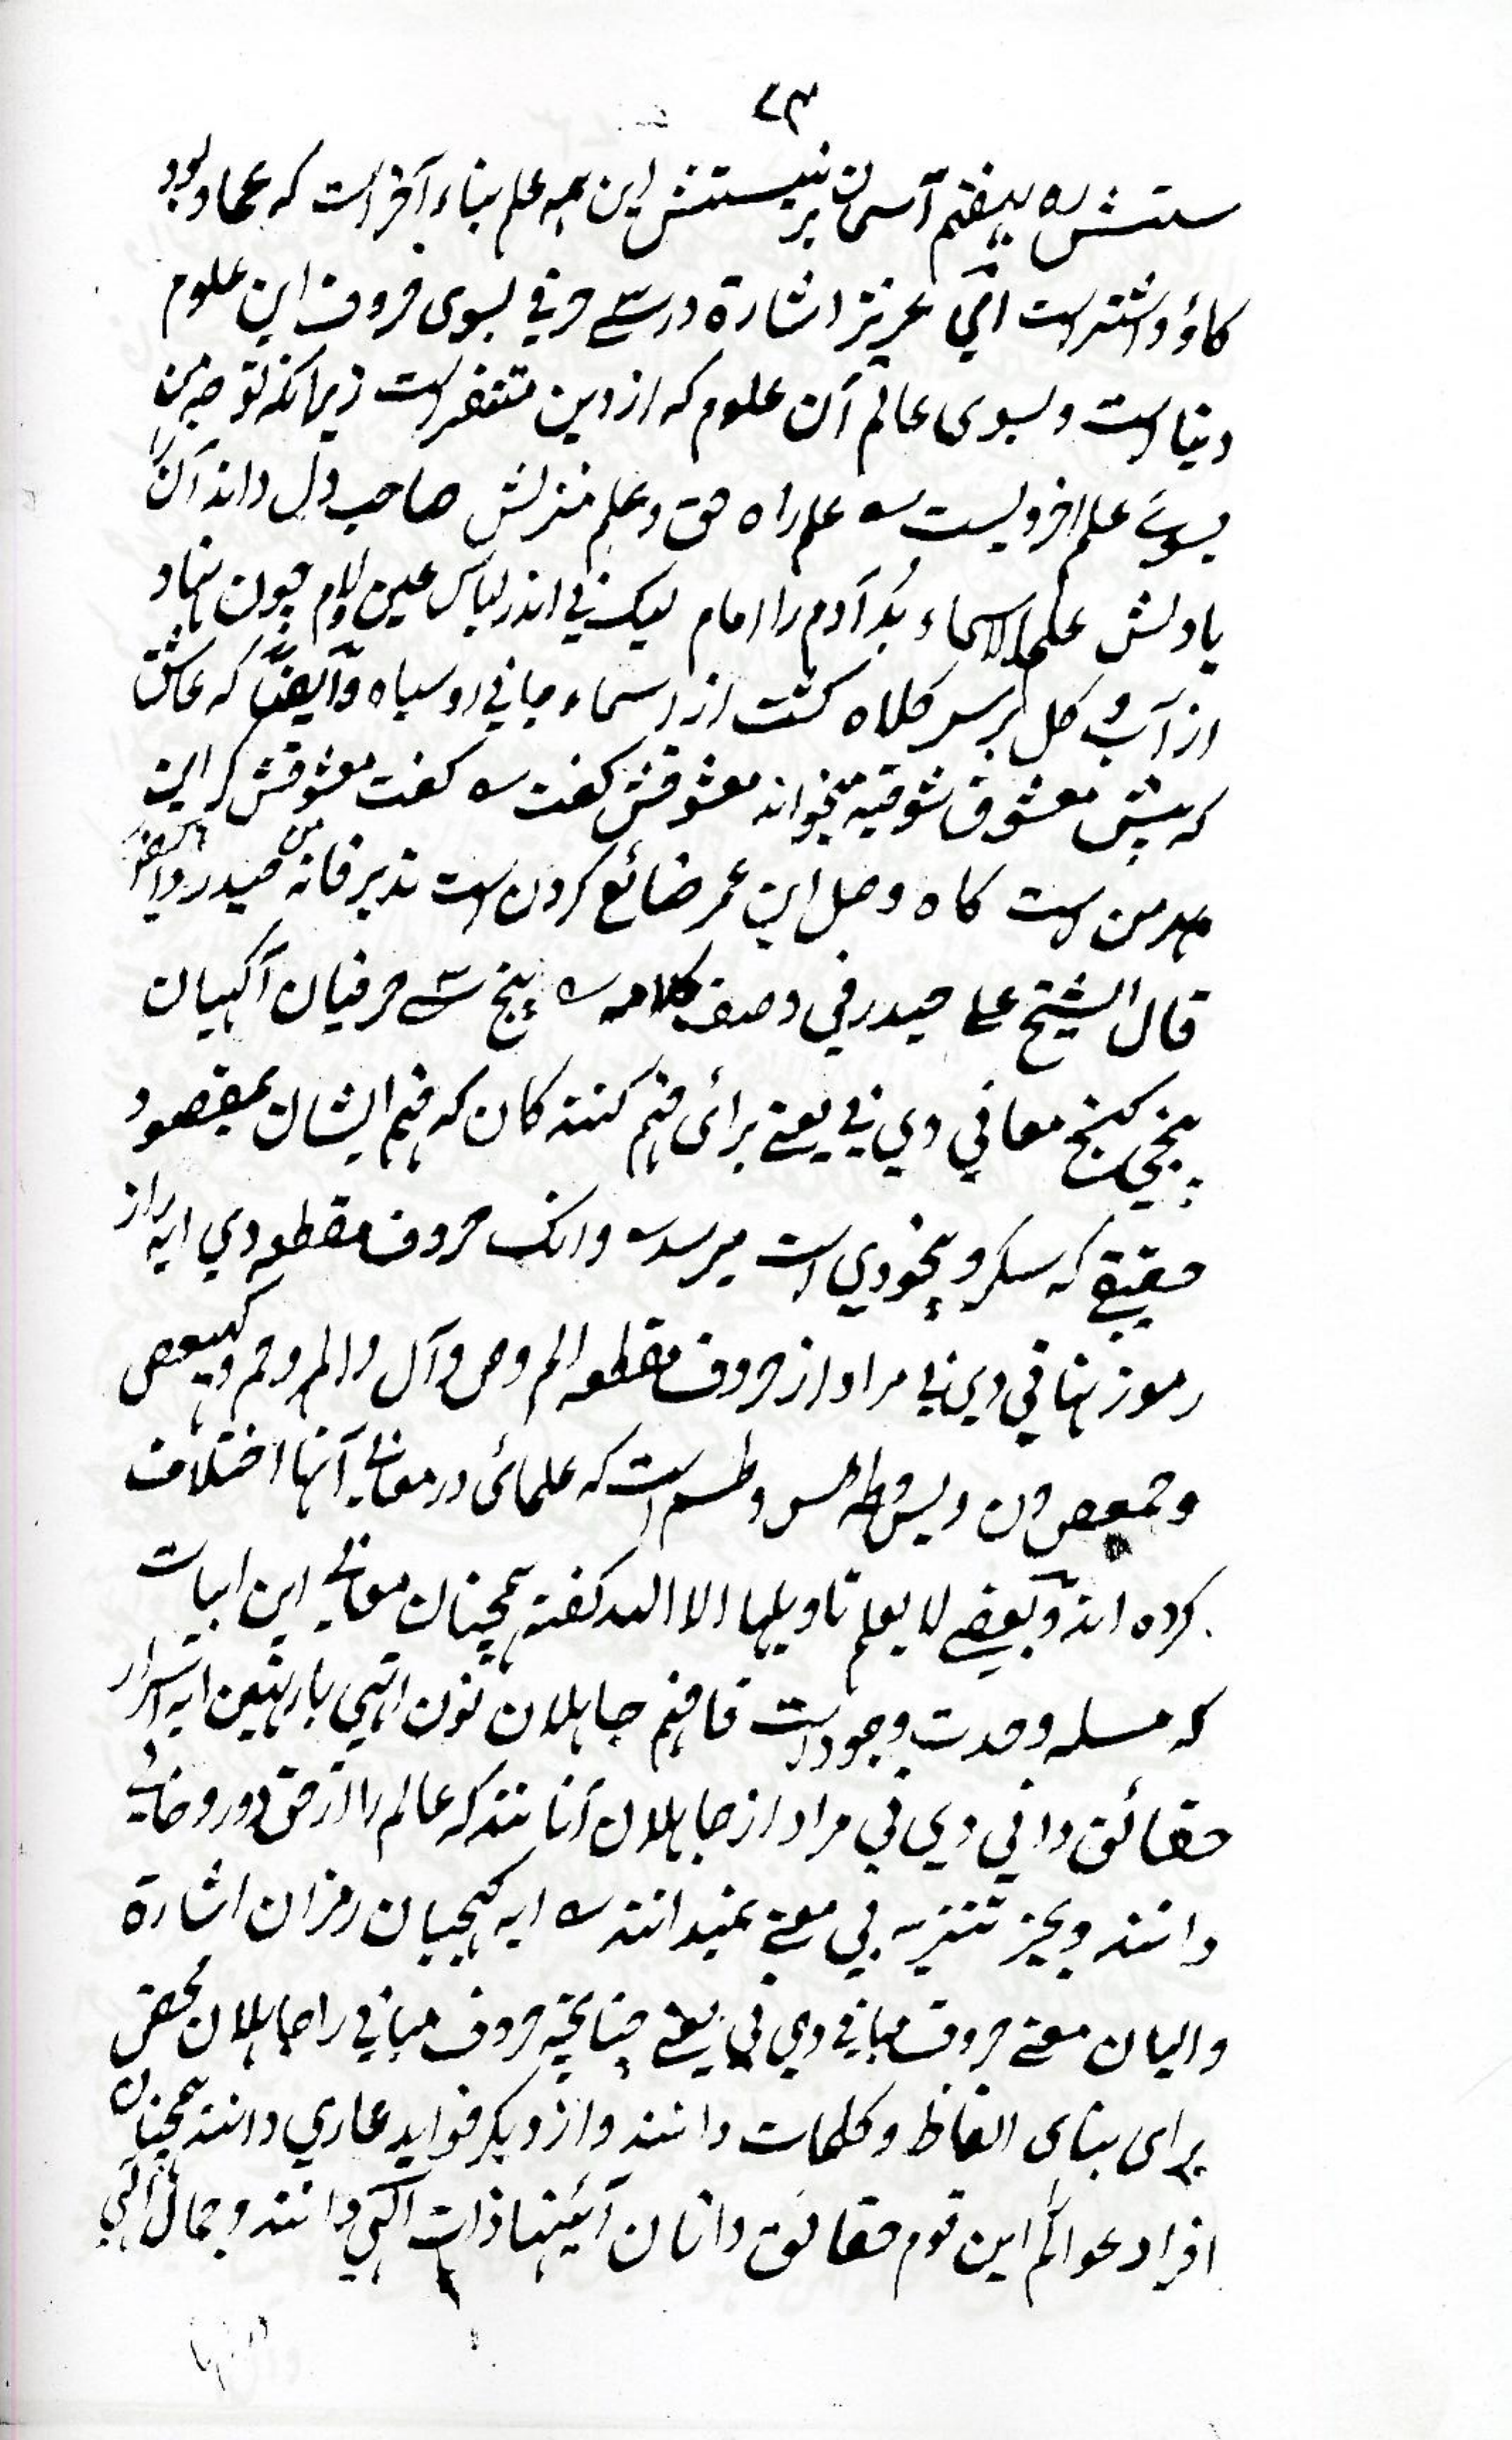 ۷۳
ستش ره بهفتم آسمان بر نیستش این همه علم بناء آخر است که عماد بود
کاؤ و اشتر است ای عزیز اشارة در سے حرفي بسوی حروف این علوم
دنیا است و بسوی عالم آن علوم که از دین متنفر است زیرانکه توجه من
بسوے علم اخرویست ؎ علم راه حق و علم منزلش صاحب دل داند آن را
یا دلش علم الاسماء بُد آدم را امام لیک نے اندر لباس عین و لام چون نهاد
از آب و کل بر سر کلاه کشت از اسماء جانی رو سیاه و ایضًا که عاشق
که پیش معشوق شوقیه میخواند معشوقش کفت ؎ کفت معشوقش کر این
بهر من است کاه وصل این عمر ضائع کردن است تدبر فانه من حیدر
قال الشیخ علے حیدر في وصف کلامه ؎ پنج سے حرفیان آکهیان
پنجے کنج معاني دي نے یعنے برائ فهم کنندکان که فهم ایشان بمقصود
حقیقے که سکر و بیخودي است میرسد ؎ وانک حروف مقطعه دي ایه راز
رموز نهاني دي نے مراد از حروف مقطعه الم و ص و آل و المر و حم و کهیعص
و حمعص و ن و یس و طه طس و طسم است که علمائ در معانے آنها اختلاف
کرده اند و بعضے لا یعلم تاویلها الا الله کفته همچنان معانے این ابیات
که مسله وحدت وجود است فافهم جاهلان نون ایه اسرار
حقائق داني دي نی مراد از جاهلان آنانند که عالم را از حق دور و خالے
دانند و بجز تنزیه بی معنے نمیدانند ؎ ایه کیهیان رمزان اشارة
والیان معنے حروف مباني دي نی یعنے چنانچه حروف مباني را جاهلان محض
برای بنای الفاظ و کلمات دانند و از دیکر فواید عاري دانند همچنان
افراد عوالم این قوم حقائق دانان آئینها ذات الٰهی دانند و جمال الٰهی